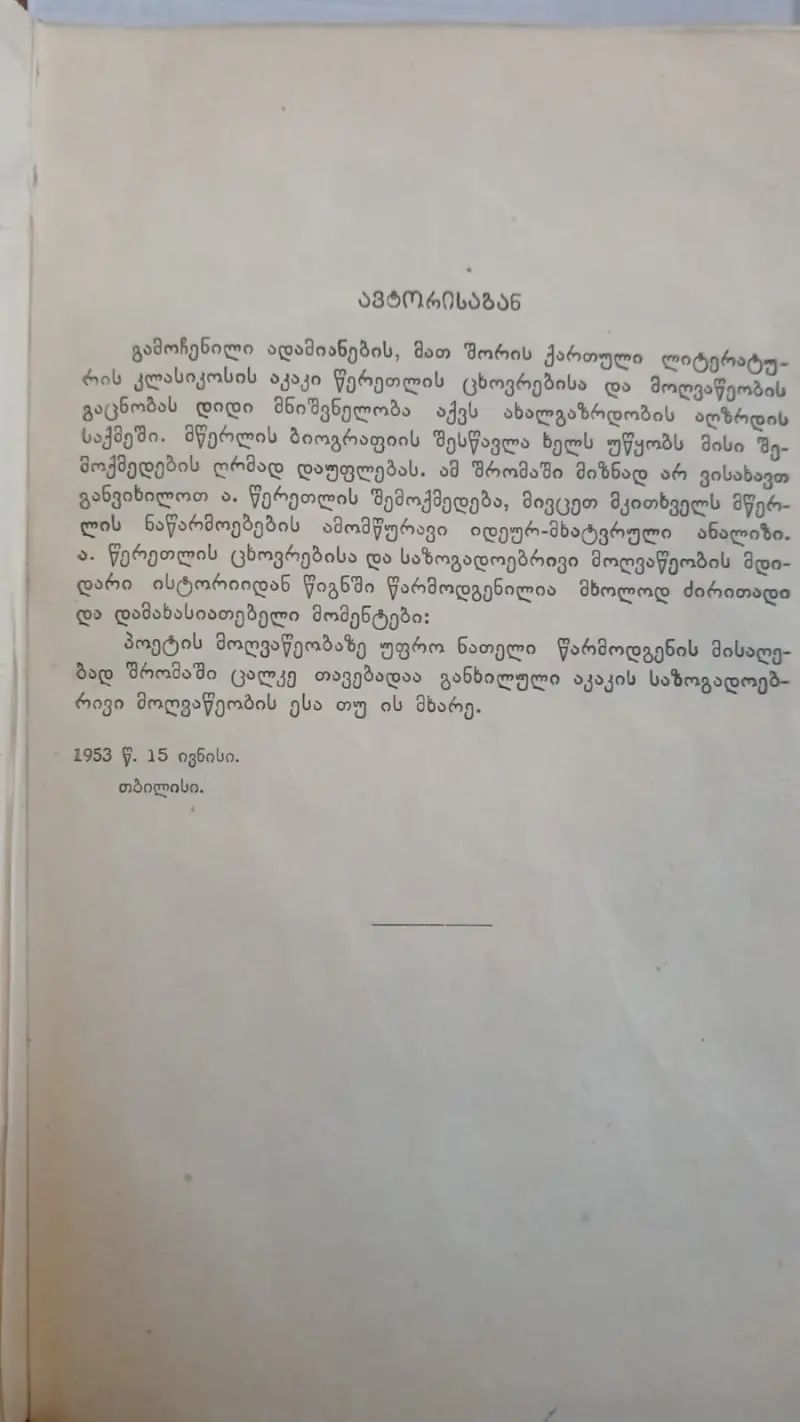 ავტორისაგან
გამოჩენილი ადამიანების, მათ შორის ქართული ლიტერატუ-
რის კლასიკოსის აკაკი წერეთლის ცხოვრებისა და მოღვაწეობის
გაცნობას დიდი მნიშვნელობა აქვს ახალგაზრდობის აღზრდის
საქმეში. მწერლის ბიოგრაფიის შესწავლა ხელს უწყობს მისი შე-
მოქმედების ღრმად დაუფლებას. ამ შრომაში მიზნად არ ვისახავთ
განვიხილოთ ა. წერეთლის შემოქმედება, მივცეთ მკითხველს მწერ-
ლის ნაწარმოებების ამომწურავი იდეურ-მხატვრული ანალიზი.
ა. წერეთლის ცხოვრებისა და საზოგადოებრივი მოღვაწეობის მდი-
დარი ისტორიიდან წიგნში წარმოდგენილია მხოლოდ ძირითადი
და დამახასიათებელი მომენტები:
პოეტის მოღვაწეობაზე უფრო ნათელი წარმოდგენის მისაღე-
ბად შრომაში ცალკე თავებადაა განხილული აკაკის საზოგადოებ-
რივი მოღვაწეობის ესა თუ ის მხარე.
1953 წ. 15 ივნისი.
თბილისი.